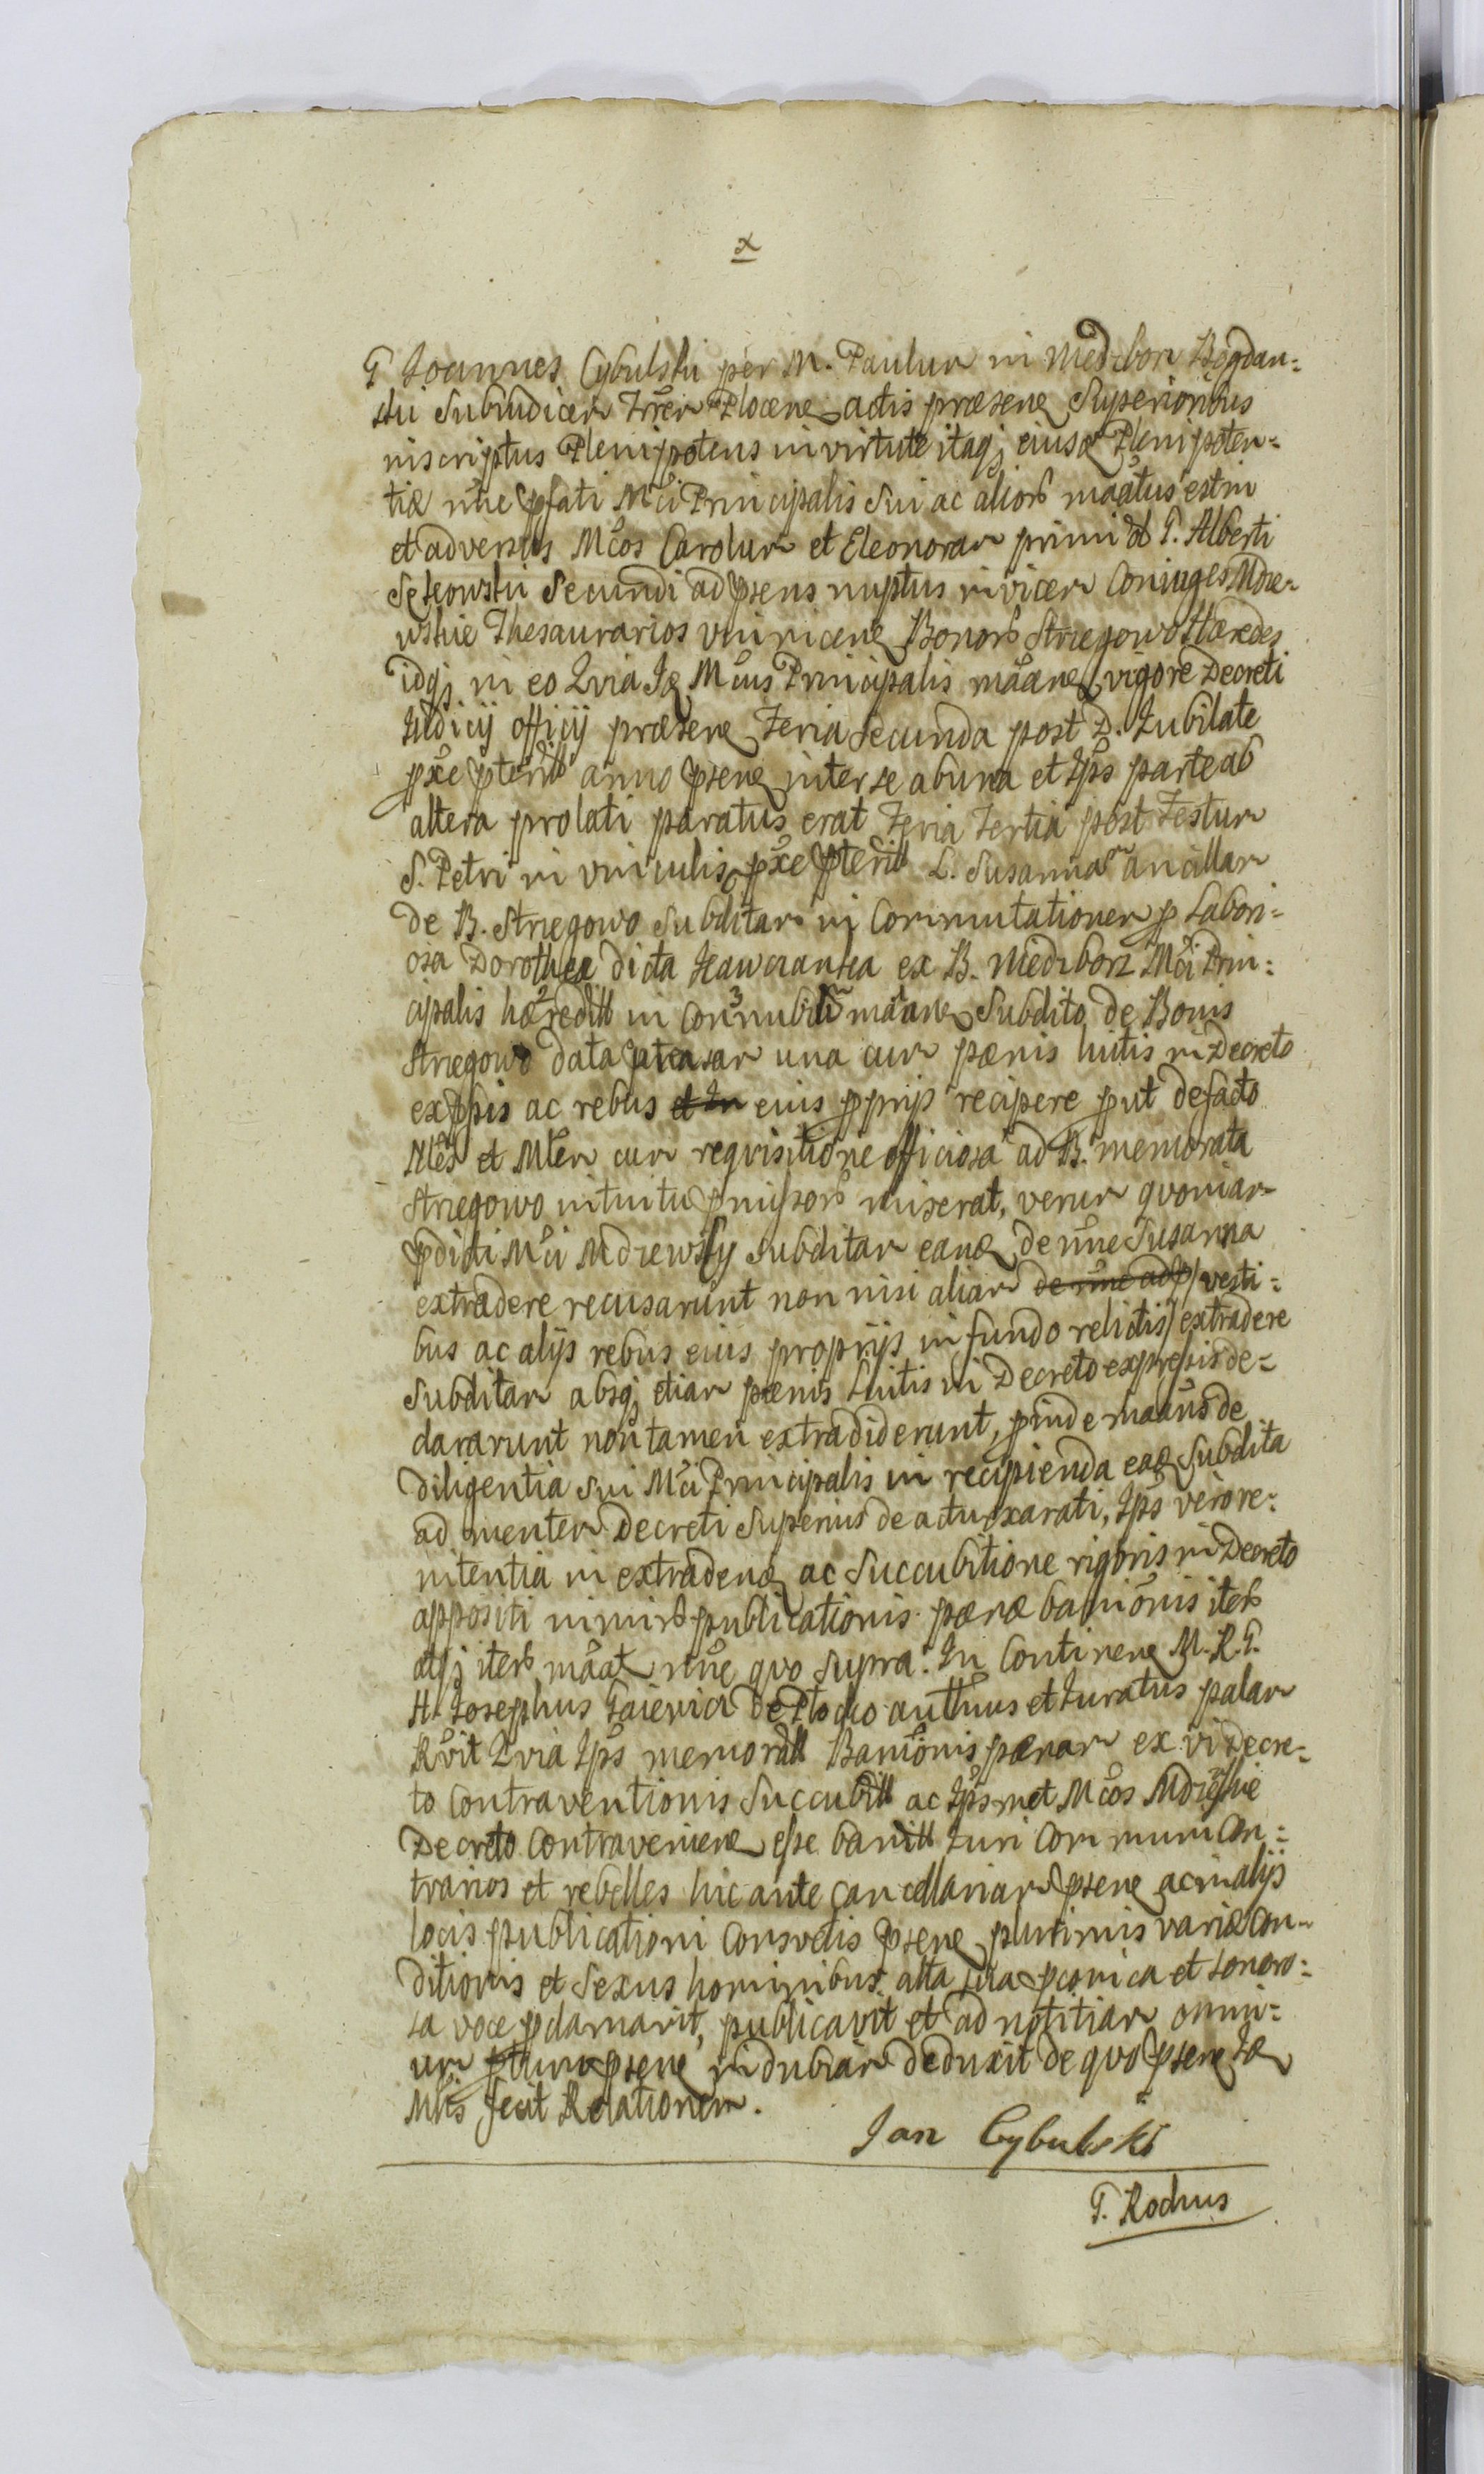 x
G Joannes Cybulski per M. Paulum in Medzborz Bogdan=
ski Subiudicem Trrem Plocen actis præsen Superioribus
inscriptus Plenipotens in virtute itaq eiusd Plenipoten=
tiæ nne pfati Mci Principalis sui ac aliorum maatus est in
et adversus Mcos Carolum et Eleonoram primi ol G. Alberti
Secundi ad psens nuptus invicem Coniuges Mdze-
wskie Thesaurarios Bonorum Strzegowo Hæredes
idq in eo Qvia Je Mcus Principalis maanen vigore Decreti
Judicij officij præsen Feria Secunda post D. Jubilate
pxe pterill anno psen inter se ab una et Ips parte ab
altera prolati paratus erat Feria Tertia post Festum
S. Petri in vinculis pxe pterill L. Susannam ancillam
de B. Strzegowo Subditam in Commutationem p Labori=
osa Dorothea dicta Kawczanka ex B. Medzborz Mci Prin=
cipalis hæredill in Connubium maanen Subdito de Bonis
Strzegowo data una cum pænis luitis in Decreto
exppis ac rebus et In eius pprijs recipere put defacto
Nles et Mlem cum reqvisitione officiosa ad B. memorata
Strzegowo intuitu pmissorum miserat, verum qvoniam
pdicti Mci Mdzewscy Subditam eand de nne Susanna
extradere recusarunt non nisi aliam de nne adp / vesti=
bus ac alijs rebus eius proprijs in fundo relictis / extradere
Subditam absq etiam pænis Luitis in Decreto expressis de=
clararunt non tamen extradiderunt, pinde maatus de
diligentia sui Mci Principalis in recipienda ead Subdita
ad mentem Decreti Superius de actu exarati, Ips vero re=
nitentia in extraden ac Succubitione rigoris in Decreto
appositi nimirum publicationis pænæ banionis iterum
atq iterum maat nne qvo supra. In Continen M. R. G.
H. Josephus Gaiewicz de Plocko authnus et Juratus palam
Rvit Qvia Ips memorall Banionis pænam ex vi Decre=
to Contraventionis Succubill ac Ipsmet Mcos Mdzewskie
Decreto Contravenien esse banill Juri Communi Con=
trarios et rebelles hic ante Cancellariam psen ac in alijs
locis publicationi Consvetis psen plurimis variæ Con=
ditionis et Sexus hominibus alta sua pconica et sonoro=
sa voce pclamavit, publicavit et ad notitiam omni=
um psen indubiam deduxit de qvo psen Je
Mlis fecit Relationem.
Jan Cybulski
G. Rochus